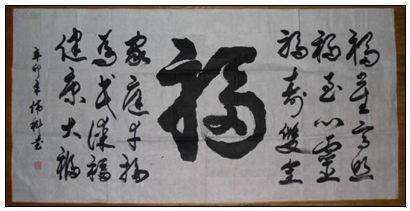 福星高照
福至心靈
福壽雙全
福
家庭幸福
為民謀福
健康大福
辛卯年書